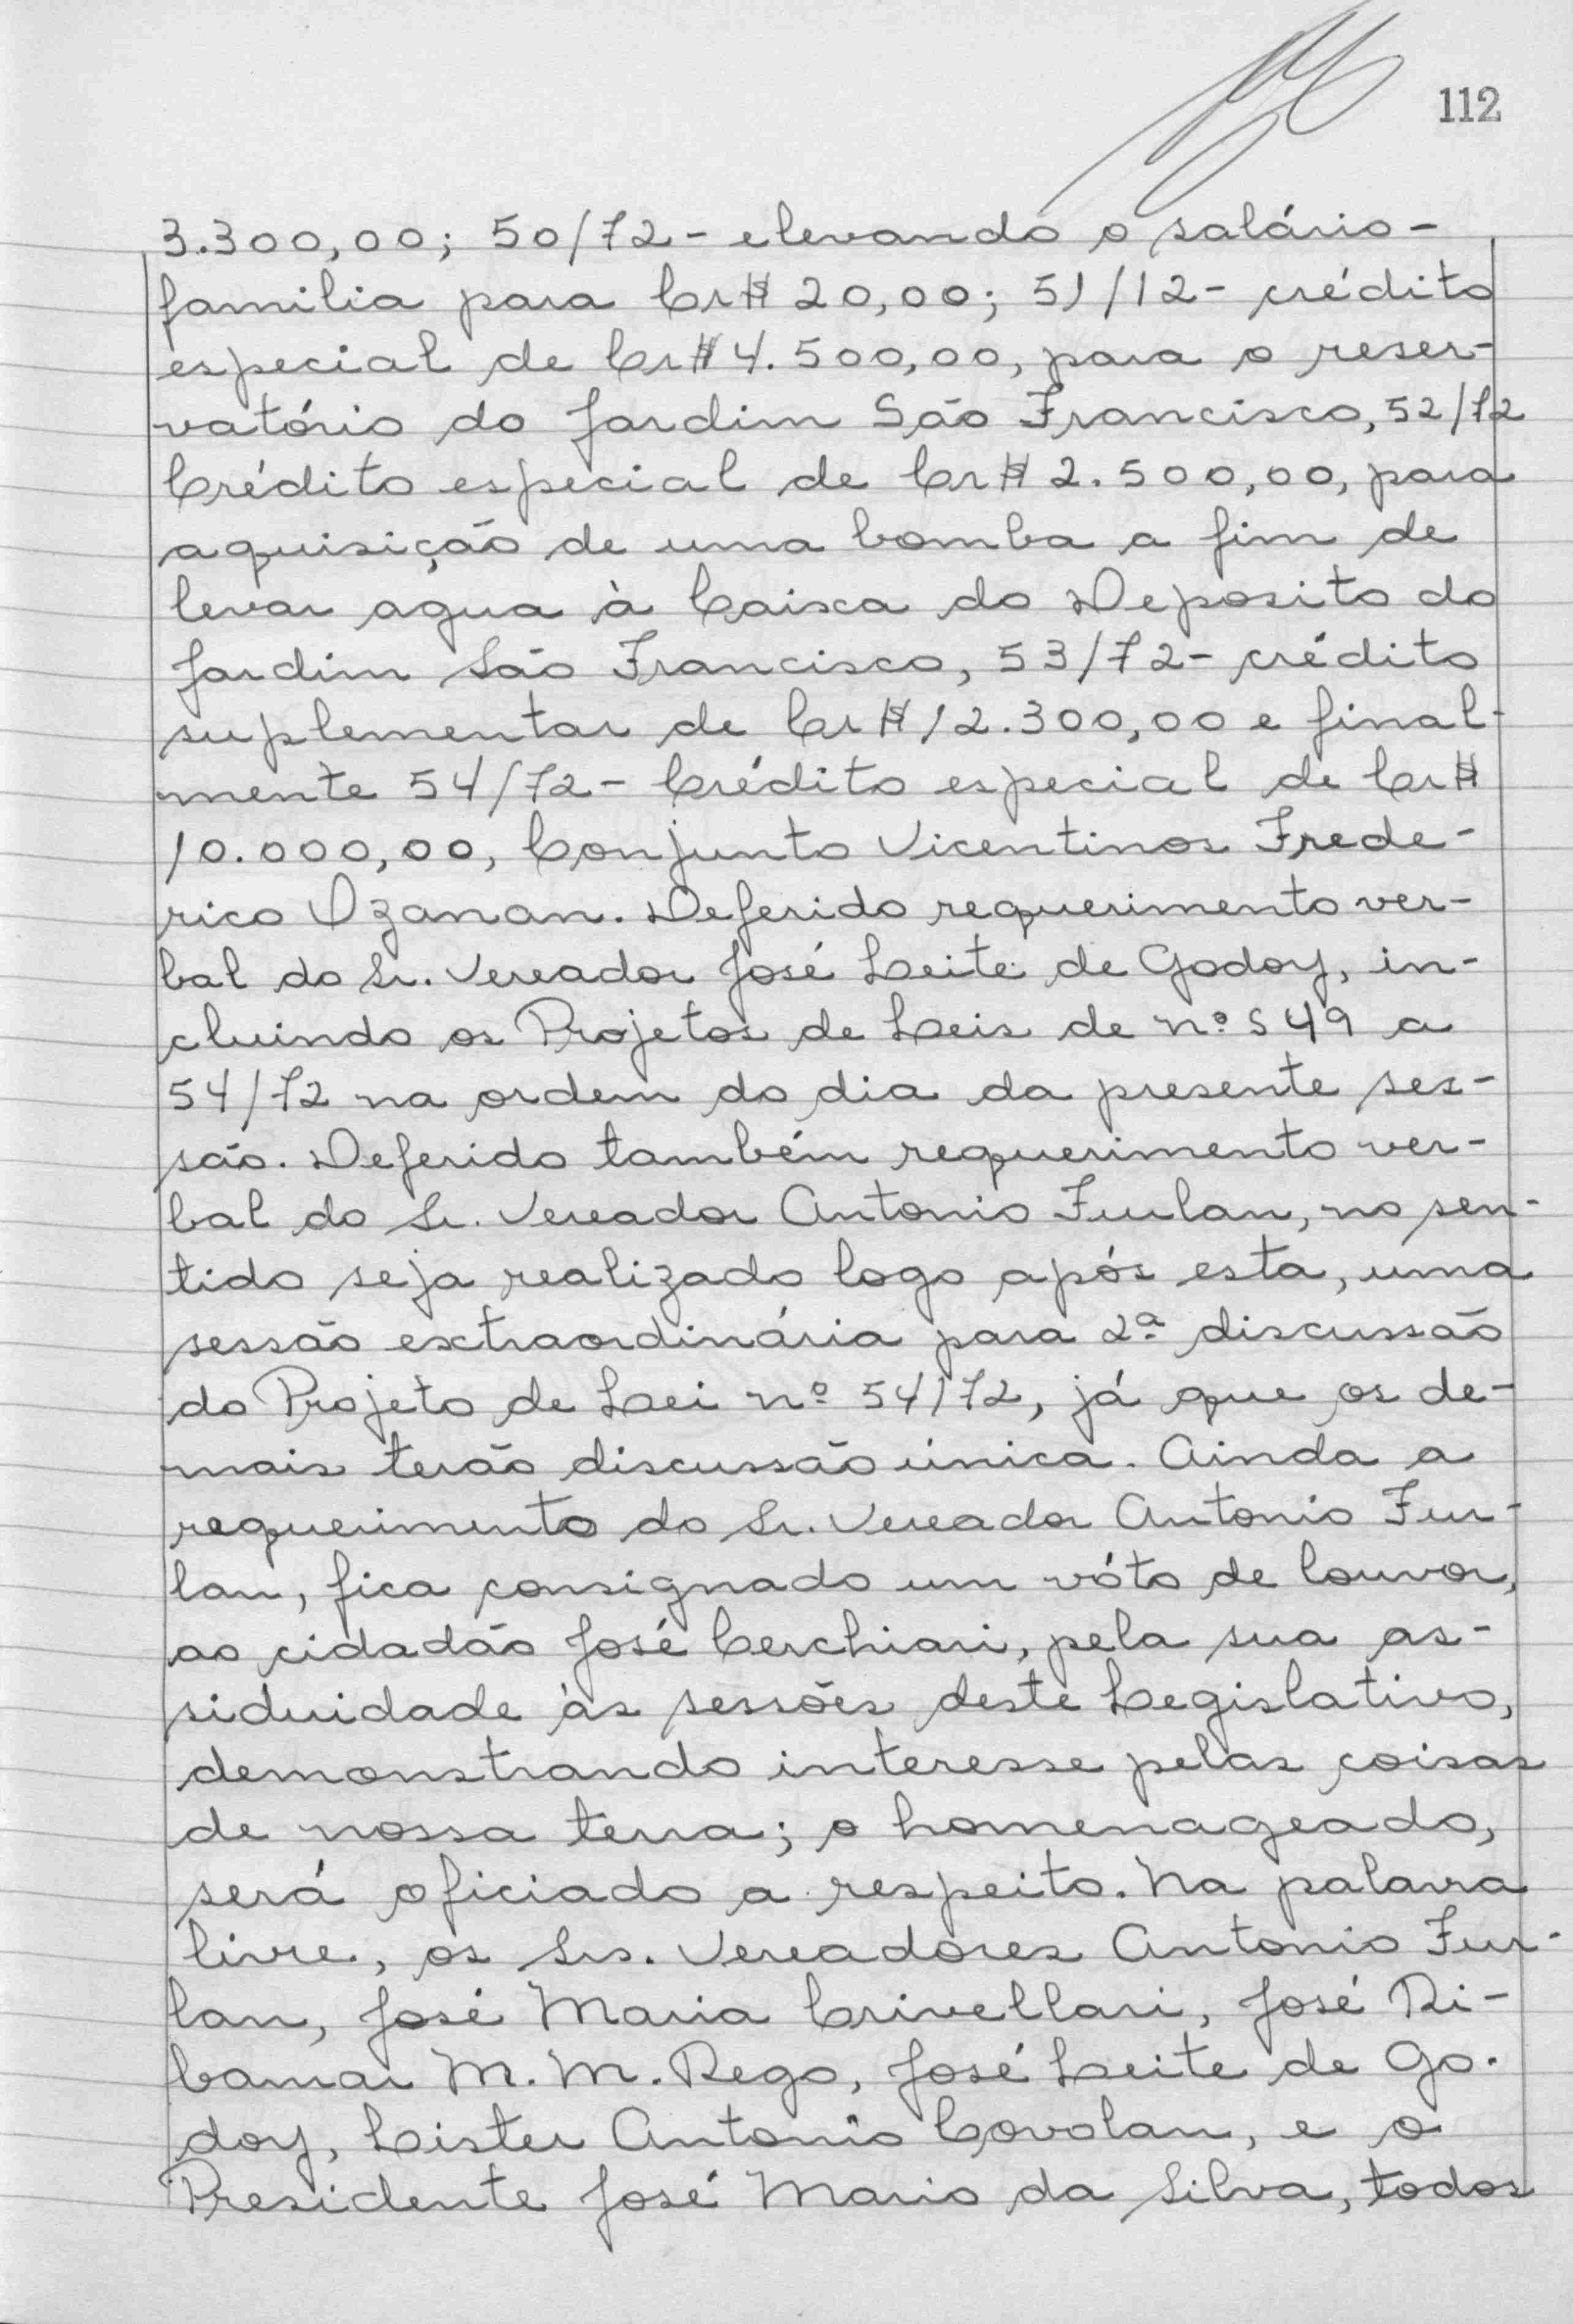 112
3.300,00; 50/72 - elevando o salário-
familia para Cr$ 20,00; 51/12 - crédito
especial de Cr$ 4.500,00, para o reser-
vatório do Jardim São Francisco, 52/72
Crédito especial de Cr$ 2.500,00, para
aquisição de uma bomba a fim de
levar agua à Caixa do Deposito do
Jardim São Francisco, 53/72 - crédito
suplementar de Cr$ 12.300,00 e final-
mente 54/72 - Crédito especial de Cr$
10.000,00, Conjunto Vicentinos Frede-
rico Ozanan. Deferido requerimento ver-
bal do Sr. Vereador José Leite de Godoy, in-
cluindo os Projetos de Leis de nºs 49 a
54/72 na ordem do dia da presente ses-
são. Deferido também requerimento ver-
bal do Sr. Vereador Antonio Furlan, no sen-
tido seja realizado logo após esta, uma
sessão extraordinária para 2ª discussão
do Projeto de Lei nº 54/72, já que os de-
mais terão discussão única. Ainda a
requerimento do Sr. Vereador Antonio Fur-
lan, fica consignado um vóto de louvor,
ao cidadão José Cerchiari, pela sua as-
siduidade às sessões deste Legislativo,
demonstrando interesse pelas coisas
de nossa terra; o homenageado,
será oficiado a respeito. Na palavra
livre, os Srs. Vereadores Antonio Fur-
lan, José Maria Crivellari, José Ri-
bamar M. M. Rego, José Leite de Go-
doy, Lister Antonio Covolan, e o
Presidente José Mario da Silva, todos